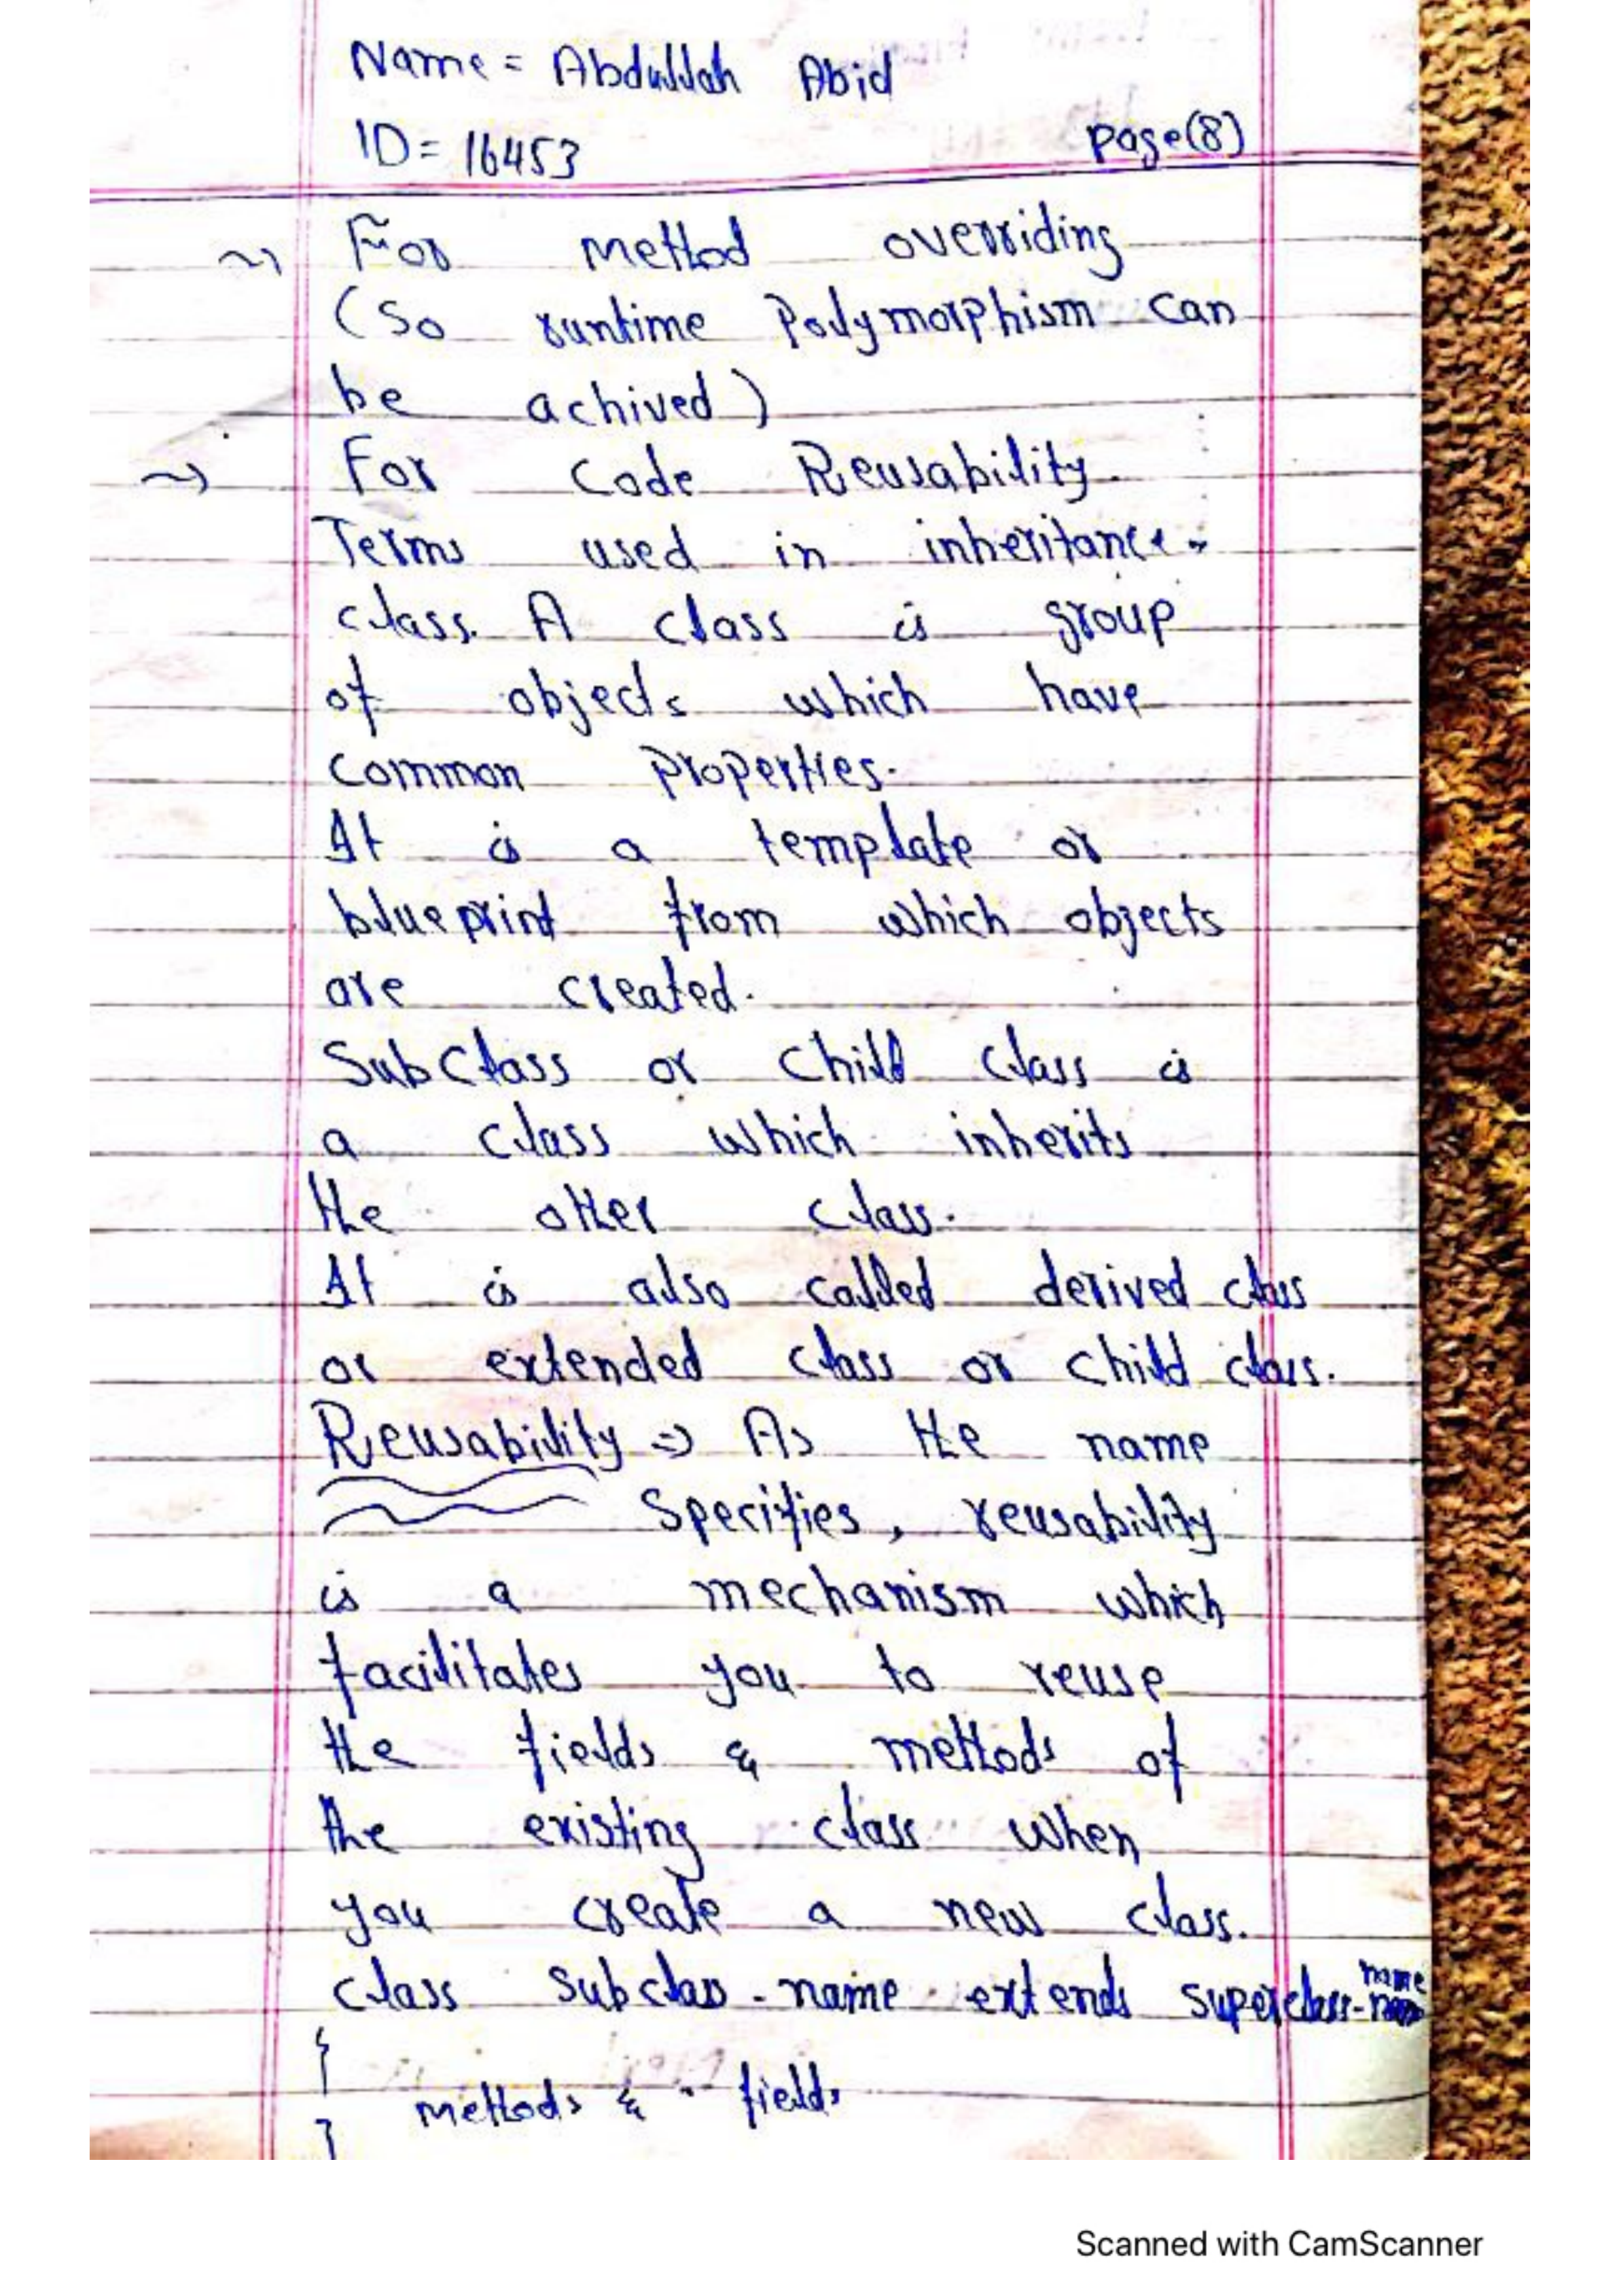 Name = Abdullah Abid
ID = 16453
page(8)
~) For method overriding
(So runtime Polymorphism can
be achived)
~) For Code Reusability.
Terms used in inheritance.
class. A class is group
of objects which have
common properties.
It is a template or
blueprint from which objects
are created.
SubClass or Child Class is
a class which inherits
the other class.
It is also called derived class
or extended class or child class.
Reusability => As the name
Specifies, reusability
is a mechanism which
facilitates you to reuse
the fields & methods of
the existing class when
you create a new class.
class subclass-name extends superclass-name
{
methods & fields
}
Scanned with CamScanner